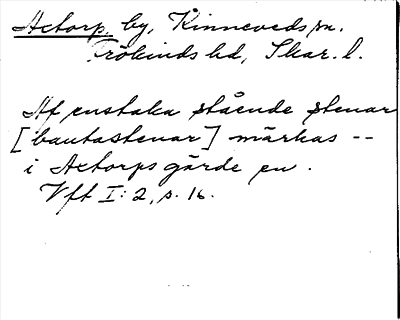 Actorp. by, Kinneveds sn.
Frökinds hd, Skar. l.
Af enstaka stående stenar
[bautastenar] märkas --
i Actorps gärde en.
Vft I: 2, s. 16.